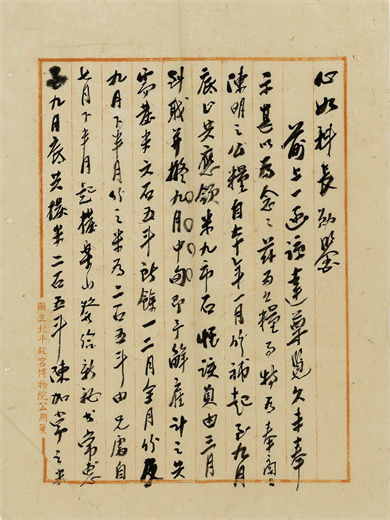 心如科長勛鑒
前上一函諒達尊覽久未奉
示甚以為念茲為公糧事特為奉商
陳明之公糧自本年一月份補起至九月
底止共應領米九市石 惟該員由三月
到職并擬九月中旬即予解雇計之共
需發米六石五斗 所餘一二月全月份
九月下半月份之米為二石五斗由兄處自
七月下半月起撥樂山 發給新秘書常惠
九月底共撥米二石五斗 陳加常之米
國立北平故宮博物院公用箋